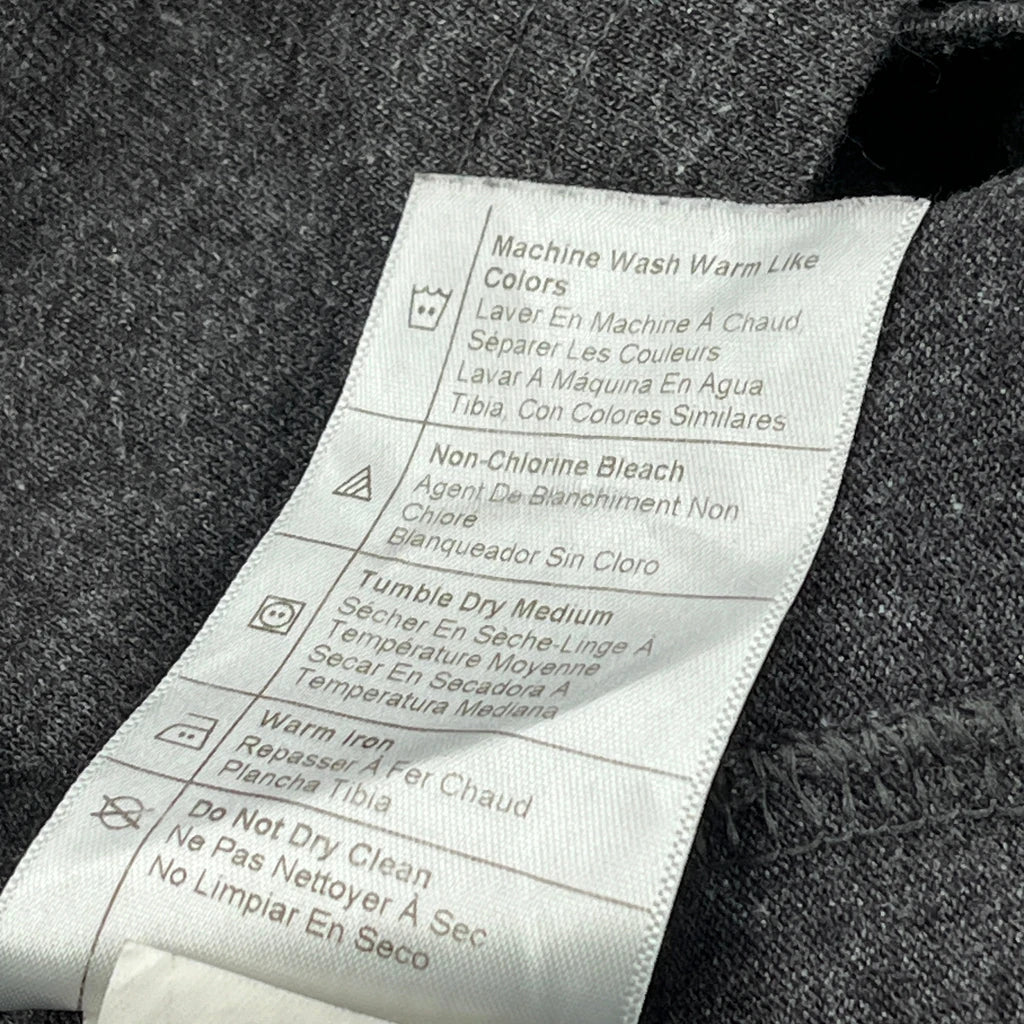 Machine Wash Warm Like
Colors
Laver En Machine À Chaud,
Séparer Les Couleurs
Lavar A Máquina En Agua
Tibia, Con Colores Similares
Non-Chlorine Bleach
Agent De Blanchiment Non
Chloré
Blanqueador Sin Cloro
Tumble Dry Medium
Sécher En Sèche-Linge À
Température Moyenne
Secar En Secadora A
Temperatura Mediana
Warm Iron
Repasser À Fer Chaud
Plancha Tibia
Do Not Dry Clean
Ne Pas Nettoyer À Sec
No Limpiar En Seco